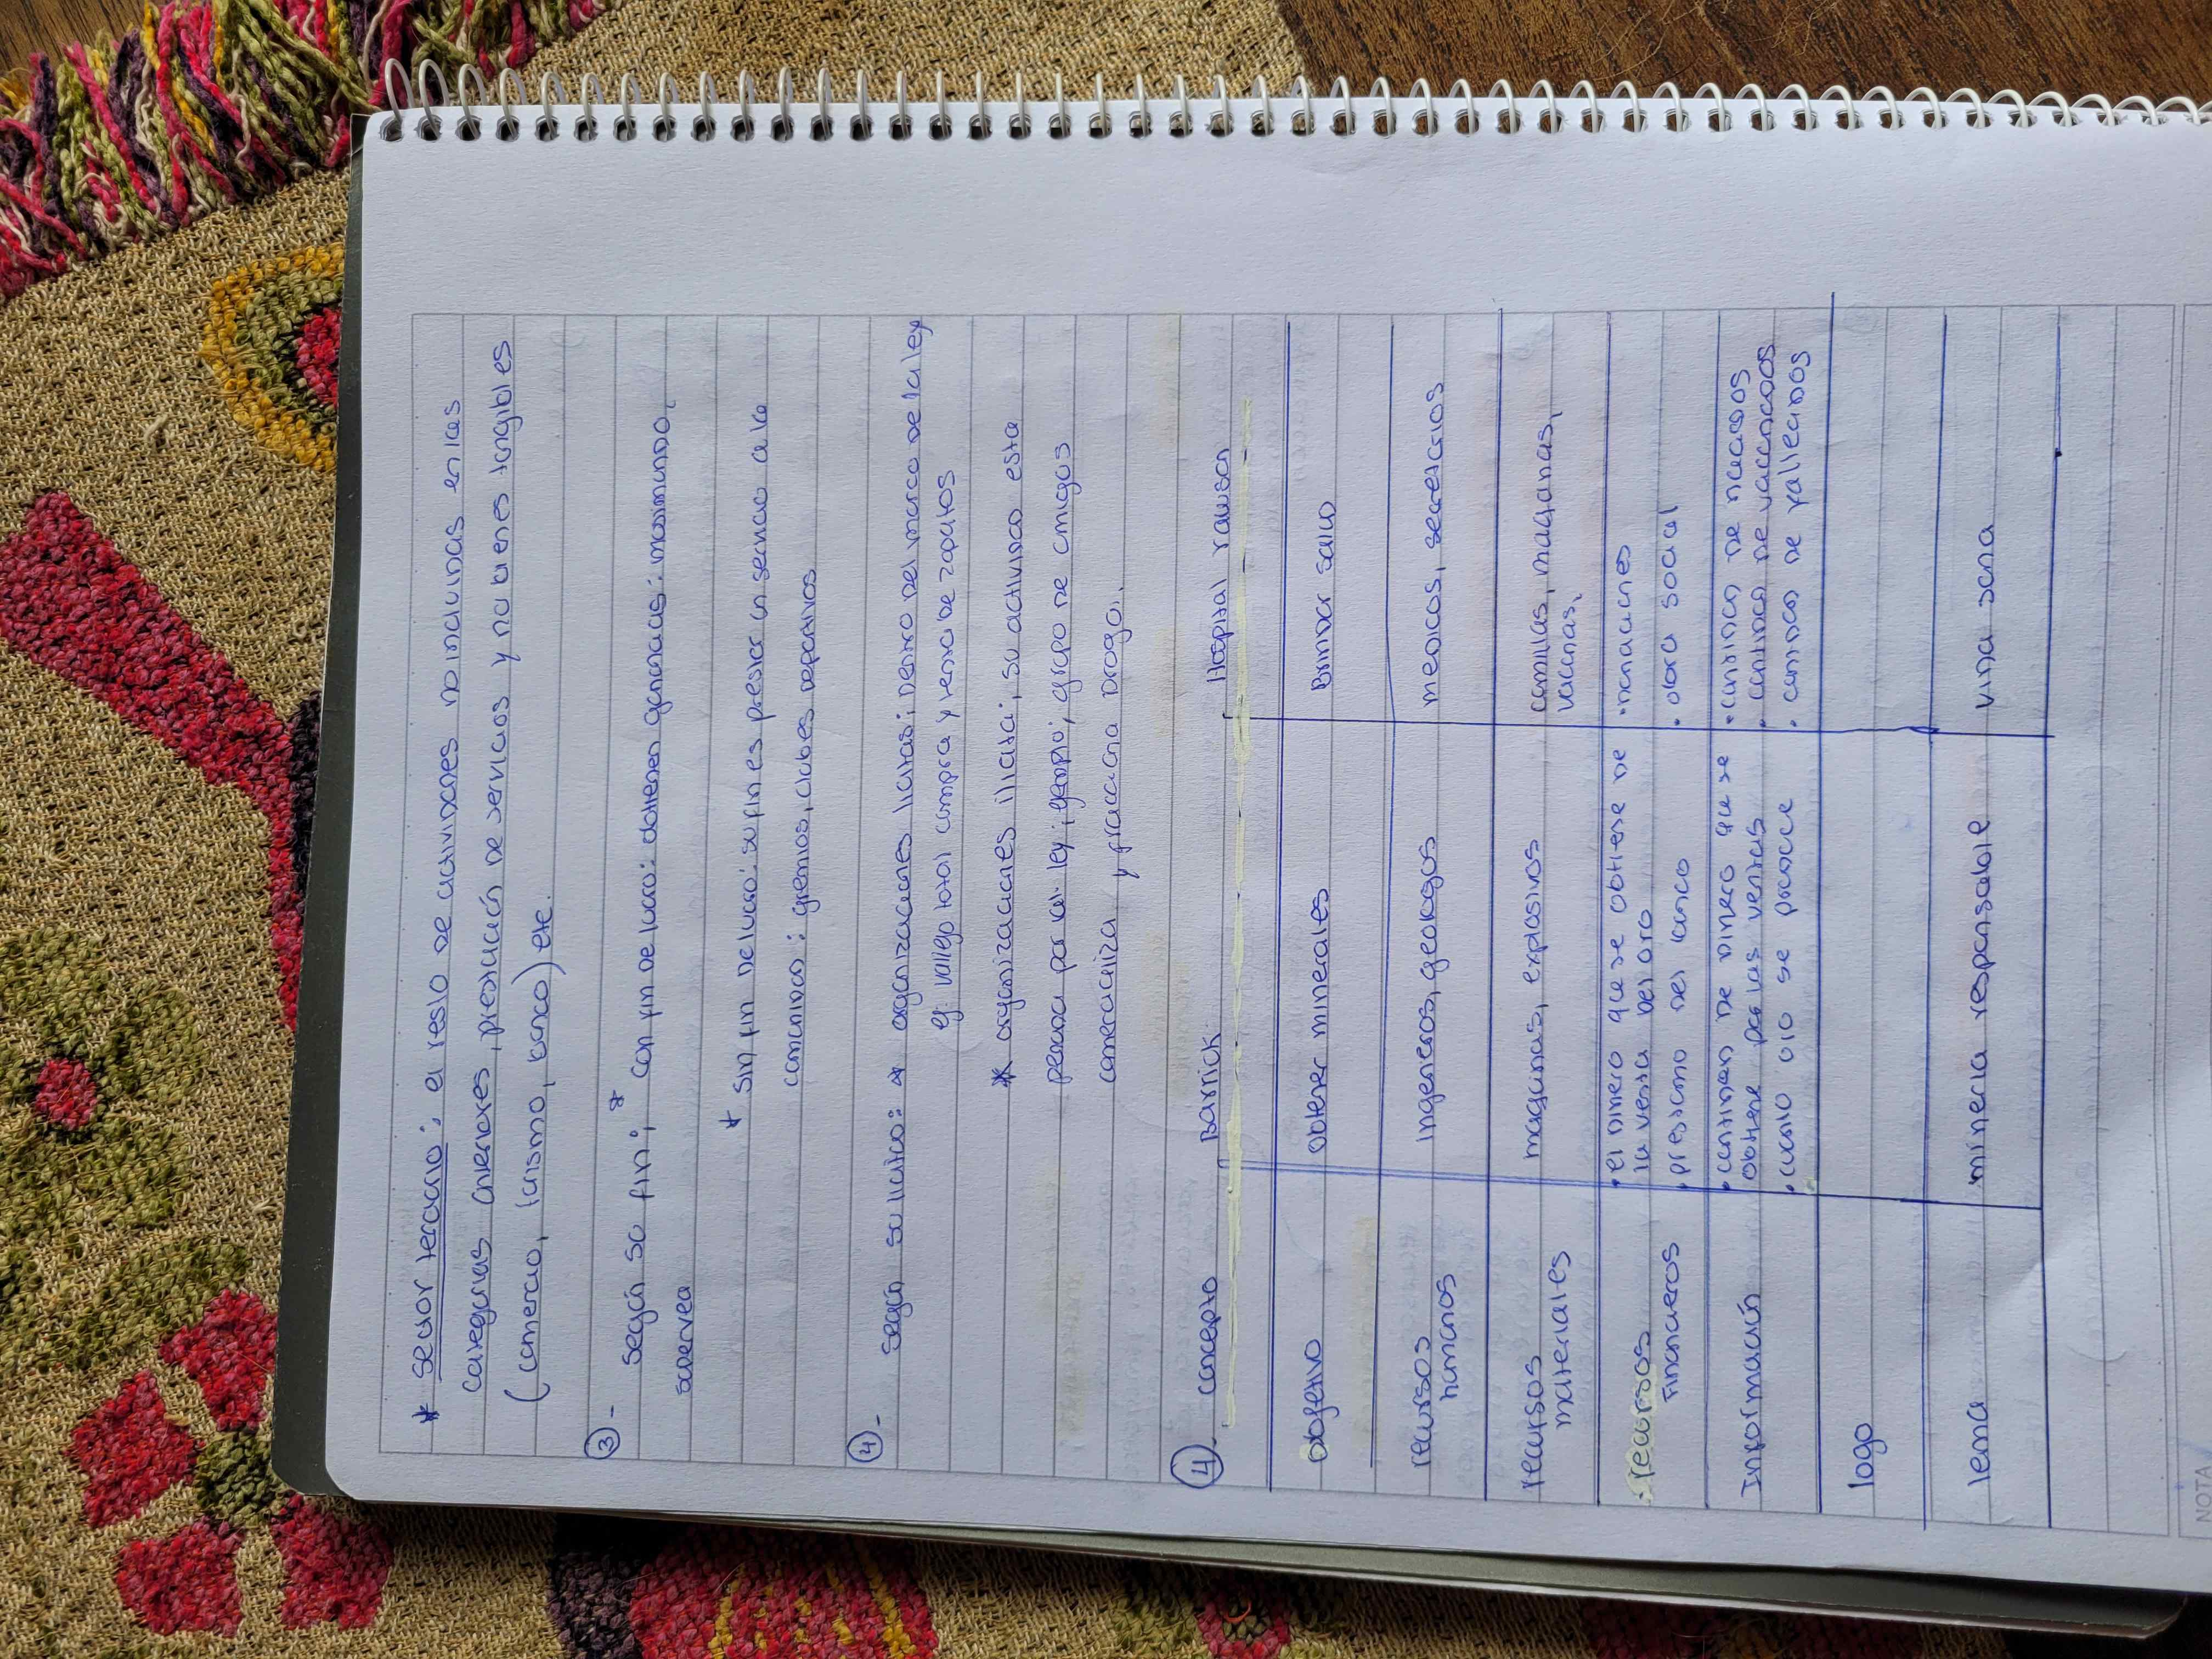 * sector terciario: el resto de actividades no incluidas en las
categorias anteriores, prestación de servicios y no bienes tangibles
(comercio, turismo, banco) etc.
③- según su fin; * con fin de lucro: obtienen ganancias: mosmundo,
supervea
* sin fin de lucro: su fin es prestar un servicio a la
comunidad: gremios, clubes deportivos
④- según su licitud: * organizaciones licitas; dentro del marco de la ley
ej: vallejo total compra y venta de zapatos
* organizaciones ilicita; su actividad esta
penada por la ley; ejemplo; grupo de amigos
comercializa y fracciona droga..
④- concepto Barrick Hospital rawson
objetivo obtener minerales Brindar salud
recursos humanos ingenieros, geologos medicos, secretarios
recursos materiales maquinas, explosivos camillas, maquinas,
vacunas,
recursos Financieros • el dinero que se obtiene de • donaciones
la venta del oro
• prestamo del banco • obra social
Información • cantidad de dinero que se • cantidad de nacidos
obtiene por las ventas • cantidad de vacunados
• cuanto oro se produce • cantidad de fallecidos
logo
lema mineria responsable vida sana
NOTA